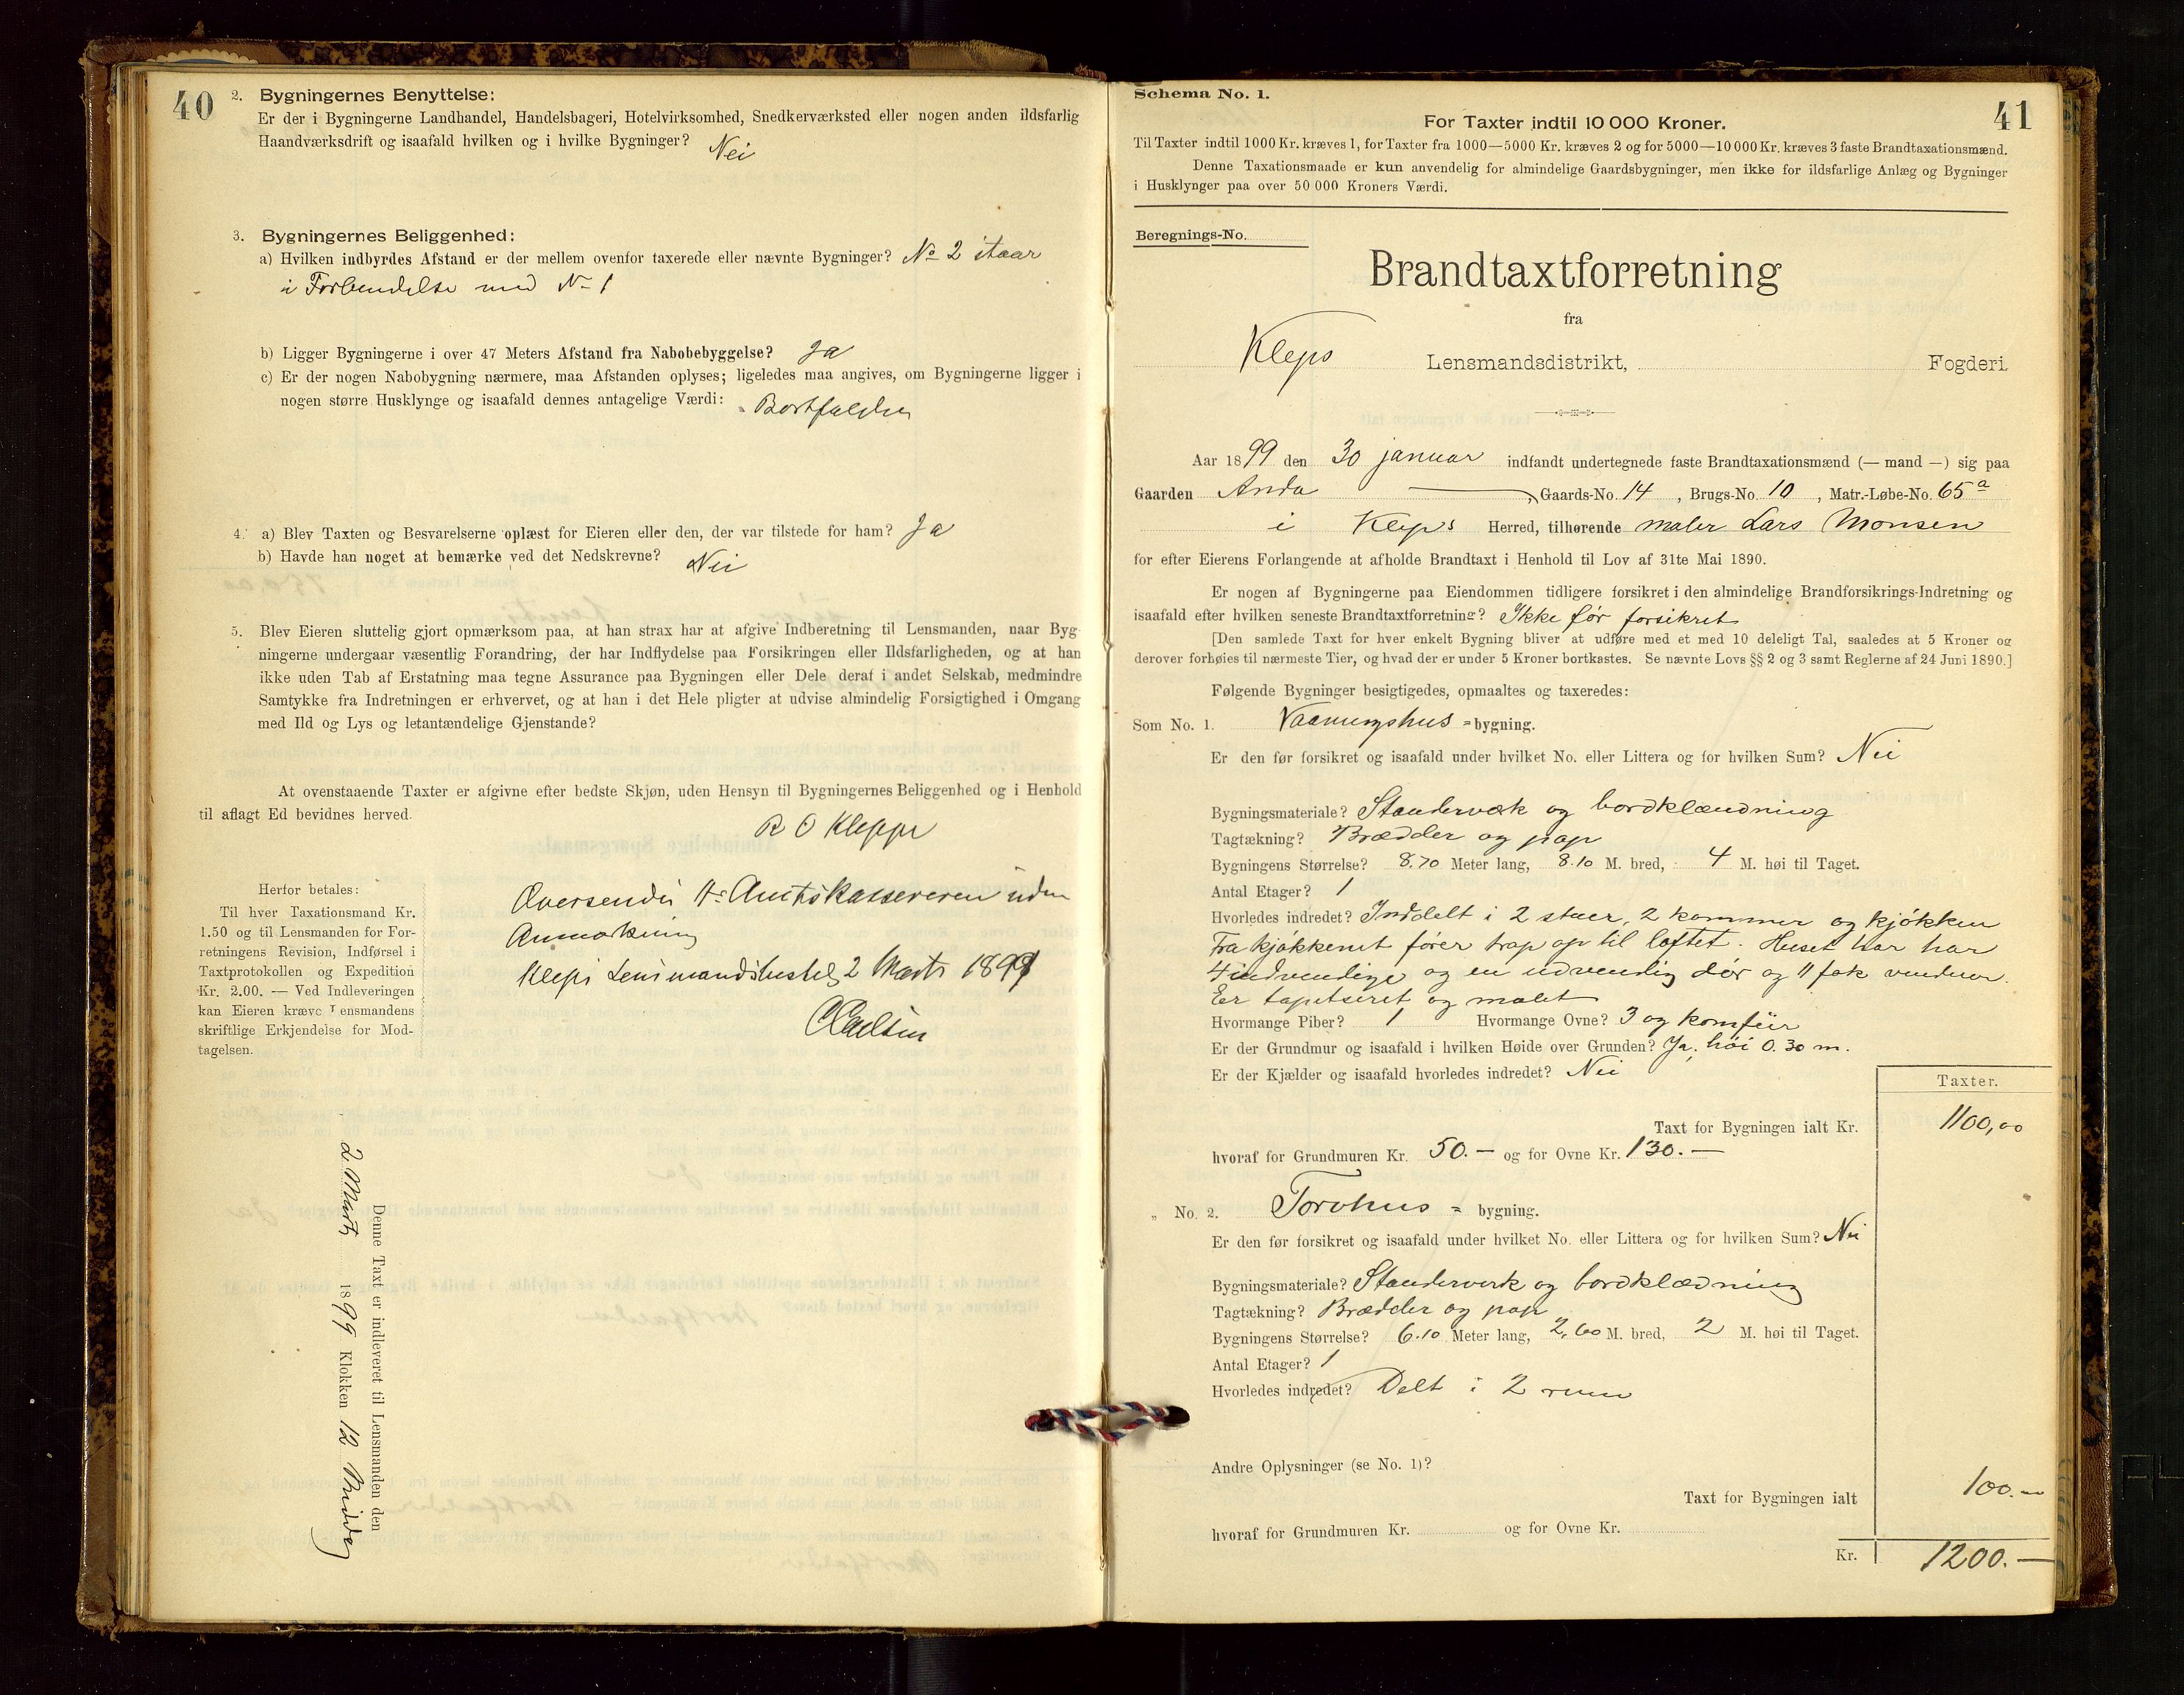 40
2. Bygningernes Benyttelse:
Er der i Bygningerne Landhandel, Handelsbageri, Hotelvirksomhed, Snedkerværksted eller nogen anden ildsfarlig
Haandværksdrift og isaafald hvilken og i hvilke Bygninger? Nei
3. Bygningernes Beliggenhed:
a) Hvilken indbyrdes Afstand er der mellem ovenfor taxerede eller nævnte Bygninger? No 2 staar
i Forbindelse med No 1
b) Ligger Bygningerne i over 47 Meters Afstand fra Nabobebyggelse? Ja
c) Er der nogen Nabobygning nærmere, maa Afstanden oplyses; ligeledes maa angives, om Bygningerne ligger i
nogen større Husklynge og isaafald dennes antagelige Værdi: Bortfalder
4. a) Blev Taxten og Besvarelserne oplæst for Eieren eller den, der var tilstede for ham? Ja
b) Havde han noget at bemærke ved det Nedskrevne? Nei
5. Blev Eieren sluttelig gjort opmærksom paa, at han strax har at afgive Indberetning til Lensmanden, naar Byg
ningerne undergaar væsentlig Forandring, der har Indflydelse paa Forsikringen eller Ildsfarligheden, og at han
ikke uden Tab af Erstatning maa tegne Assurance paa Bygningen eller Dele deraf i andet Selskab, medmindre
Samtykke fra Indretningen er erhvervet, og at han i det Hele pligter at udvise almindelig Forsigtighed i Omgang
med Ild og Lys og letantændelige Gjenstande?
At ovenstaaende Taxter er afgivne efter bedste Skjøn, uden Hensyn til Bygningernes Beliggenhed og i Henhold
til aflagt Ed bevidnes herved.
R O Kleppe
Herfor betales:
Til hver Taxationsmand Kr.
1.50 og til Lensmanden for For-
retningens Revision, Indførsel i
Taxtprotokollen og Expedition
Kr. 2.00. — Ved Indleveringen
kan Eieren kræve Lensmandens
skriftlige Erkjendelse for Mod-
tagelsen.
Oversendes Hr Amtskassereren uden
Anmærkning
Kleps Lensmandsbestel 2 Marts 1899
Denne Taxt er indleveret til Lensmanden den
2 Marts 1899 Klokken 12 Middag
Schema No. 1.
41
For Taxter indtil 10 000 Kroner.
Til Taxter indtil 1000 Kr. kræves 1, for Taxter fra 1000—5000 Kr. kræves 2 og for 5000—10 000 Kr. kræves 3 faste Brandtaxationsmænd.
Denne Taxationsmaade er kun anvendelig for almindelige Gaardsbygninger, men ikke for ildsfarlige Anlæg og Bygninger
i Husklynger paa over 50 000 Kroners Værdi.
Beregnings-No.
Brandtaxtforretning
fra
Kleps Lensmandsdistrikt, Fogderi.
Aar 1899 den 30 januar indfandt undertegnede faste Brandtaxationsmænd (— mand —) sig paa
Gaarden Anda , Gaards-No. 14 , Brugs-No. 10 , Matr.-Løbe-No. 65 a
i Kleps Herred, tilhørende maler Lars Monsen
for efter Eierens Forlangende at afholde Brandtaxt i Henhold til Lov af 31te Mai 1890.
Er nogen af Bygningerne paa Eiendommen tidligere forsikret i den almindelige Brandforsikrings-Indretning og
isaafald efter hvilken seneste Brandtaxtforretning? Ikke før forsikret
[Den samlede Taxt for hver enkelt Bygning bliver at udføre med et med 10 deleligt Tal, saaledes at 5 Kroner og
derover forhøies til nærmeste Tier, og hvad der er under 5 Kroner bortkastes. Se nævnte Lovs §§ 2 og 3 samt Reglerne af 24 Juni 1890.]
Følgende Bygninger besigtigedes, opmaaltes og taxeredes:
Som No. 1. Vaaningshus = bygning.
Er den før forsikret og isaafald under hvilket No. eller Littera og for hvilken Sum? Nei
Bygningsmateriale? Standervæk og bordklændning
Tagtækning? Brædder og pap
Bygningens Størrelse? 8.70 Meter lang, 8.10 M. bred, 4 M. høi til Taget.
Antal Etager? 1
Hvorledes indredet? Inddelt i 2 stuer, 2 kammer og kjøkken
Fra kjøkkenet fører trap op til loftet. Huset har har
4 indvendige og en udvendig dør og 11 fak vinduer.
Er tapetseret og malet
Hvormange Piber? 1 Hvormange Ovne? 3 og komfür
Er der Grundmur og isaafald i hvilken Høide over Grunden? Ja, høi 0.30 m.
Er der Kjælder og isaafald hvorledes indredet? Nei
Taxter.
Taxt for Bygningen ialt Kr. 1100,00
hvoraf for Grundmuren Kr. 50.— og for Ovne Kr. 130.—
„ No. 2. Torvhus = bygning.
Er den før forsikret og isaafald under hvilket No. eller Littera og for hvilken Sum? Nei
Bygningsmateriale? Standerverk og bordklædning
Tagtækning? Brædder og pap
Bygningens Størrelse? 6.10 Meter lang, 2,60 M. bred, 2 M. høi til Taget.
Antal Etager? 1
Hvorledes indredet? Delt i 2 rum
Andre Oplysninger (se No. 1)?
Taxt for Bygningen ialt 100.—
hvoraf for Grundmuren Kr. og for Ovne Kr.
Kr. 1200.—